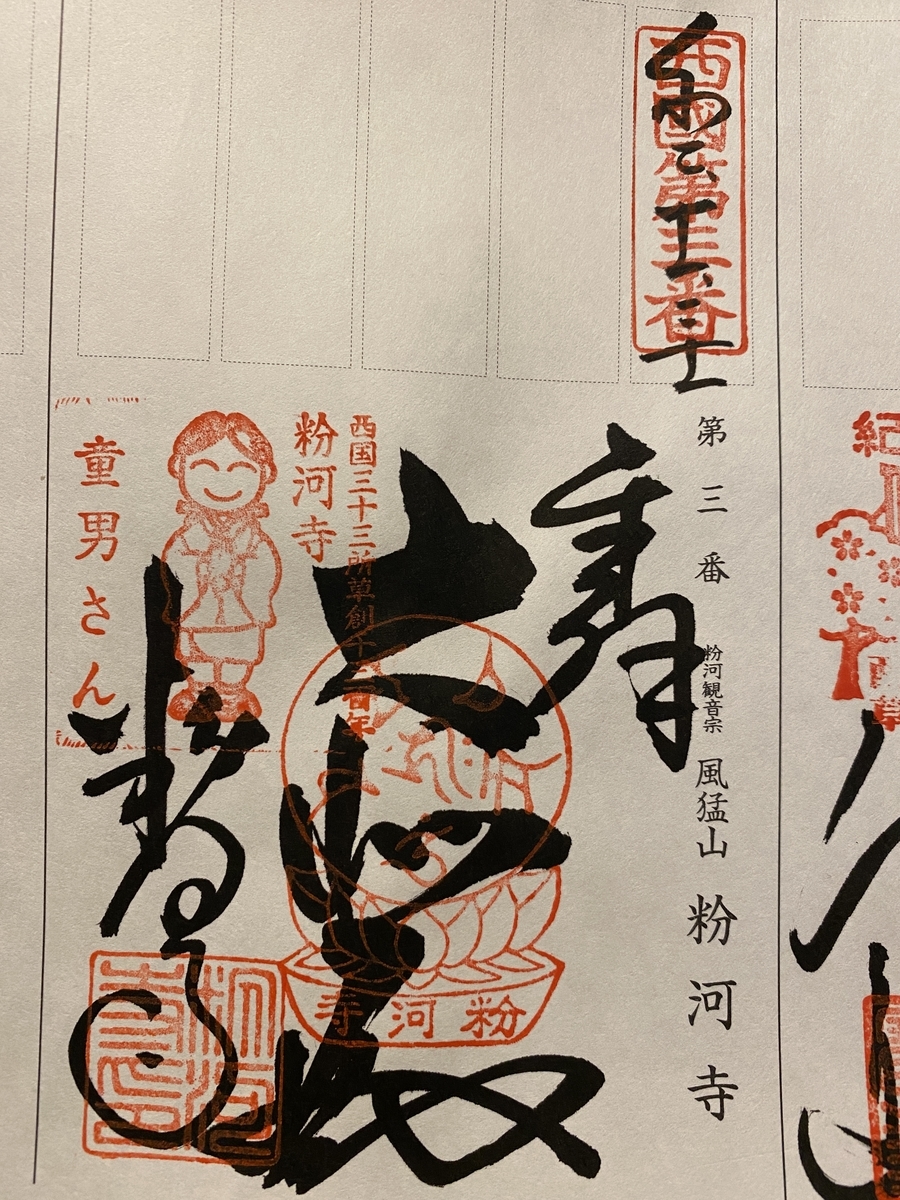 西國第三番
第三番 粉河観音宗 風猛山 粉河寺
奉拝
大悲殿
粉河寺
西国三十三所草創千三百年
粉河寺
童男さん
粉河寺
紀